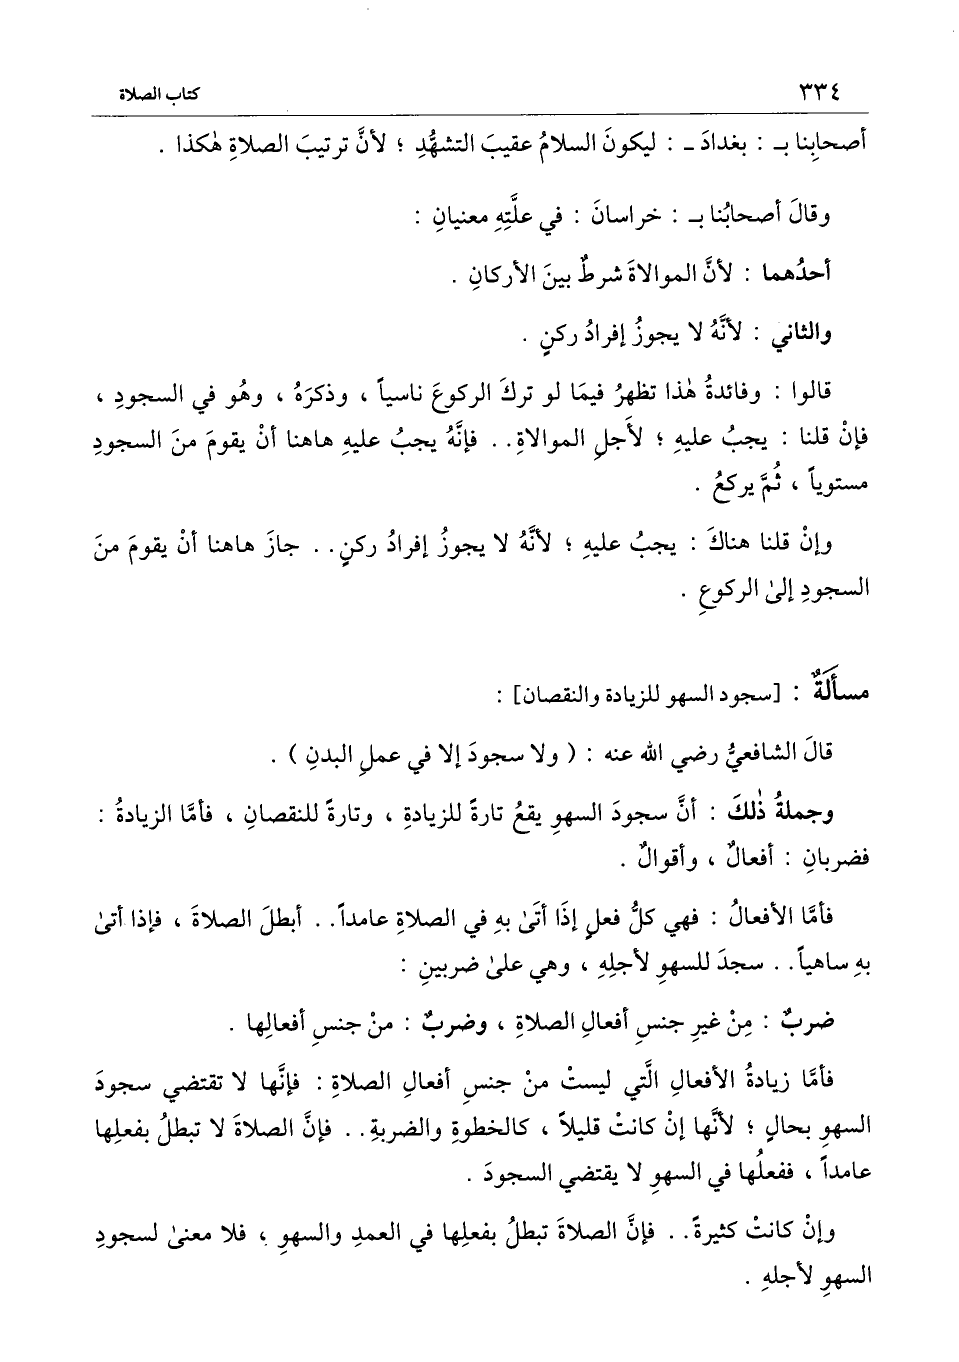 ٣٣٤
كتاب الصلاة
أصحابِنا بـ : بغدادَ ـ : ليكونَ السلامُ عقيبَ التشهُّدِ ؛ لأنَّ ترتيبَ الصلاةِ هٰكذا .
وقالَ أصحابُنا بـ : خراسانَ : في علَّتِهِ معنيانِ :
أحدُهما : لأنَّ الموالاةَ شرطٌ بينَ الأركانِ .
والثاني : لأنَّهُ لا يجوزُ إفرادُ ركنٍ .
قالوا : وفائدةُ هٰذا تظهرُ فيمَا لو تركَ الركوعَ ناسياً ، وذكرَهُ ، وهُو في السجودِ ،
فإنْ قلنا : يجبُ عليهِ ؛ لأجلِ الموالاةِ . . فإنَّهُ يجبُ عليهِ هاهنا أنْ يقومَ منَ السجودِ
مستوياً ، ثُمَّ يركعُ .
وإنْ قلنا هناكَ : يجبُ عليهِ ؛ لأنَّهُ لا يجوزُ إفرادُ ركنٍ . . جازَ هاهنا أنْ يقومَ منَ
السجودِ إلىٰ الركوعِ .
مسأَلةٌ : [سجود السهو للزيادة والنقصان] :
قالَ الشافعيُّ رضي الله عنه : ( ولا سجودَ إلا في عملِ البدنِ ) .
وجملةُ ذٰلكَ : أنَّ سجودَ السهوِ يقعُ تارةً للزيادةِ ، وتارةً للنقصانِ ، فأمَّا الزيادةُ :
فضربانِ : أفعالٌ ، وأقوالٌ .
فأمَّا الأفعالُ : فهي كلُّ فعلٍ إذَا أتىٰ بهِ في الصلاةِ عامداً . . أبطلَ الصلاةَ ، فإذا أتىٰ
بهِ ساهياً . . سجدَ للسهوِ لأجلِهِ ، وهي علىٰ ضربينِ :
ضربٌ : مِنْ غيرِ جنسِ أفعالِ الصلاةِ ، وضربٌ : منْ جنسِ أفعالِها .
فأمَّا زيادةُ الأفعالِ الَّتي ليستْ منْ جنسِ أفعالِ الصلاةِ : فإنَّها لا تقتضي سجودَ
السهوِ بحالٍ ؛ لأنَّها إنْ كانتْ قليلاً ، كالخطوةِ والضربةِ . . فإنَّ الصلاةَ لا تبطلُ بفعلِها
عامداً ، ففعلُها في السهوِ لا يقتضي السجودَ .
وإنْ كانتْ كثيرةً . . فإنَّ الصلاةَ تبطلُ بفعلِها في العمدِ والسهوِ ، فلا معنىٰ لسجودِ
السهوِ لأجلهِ .